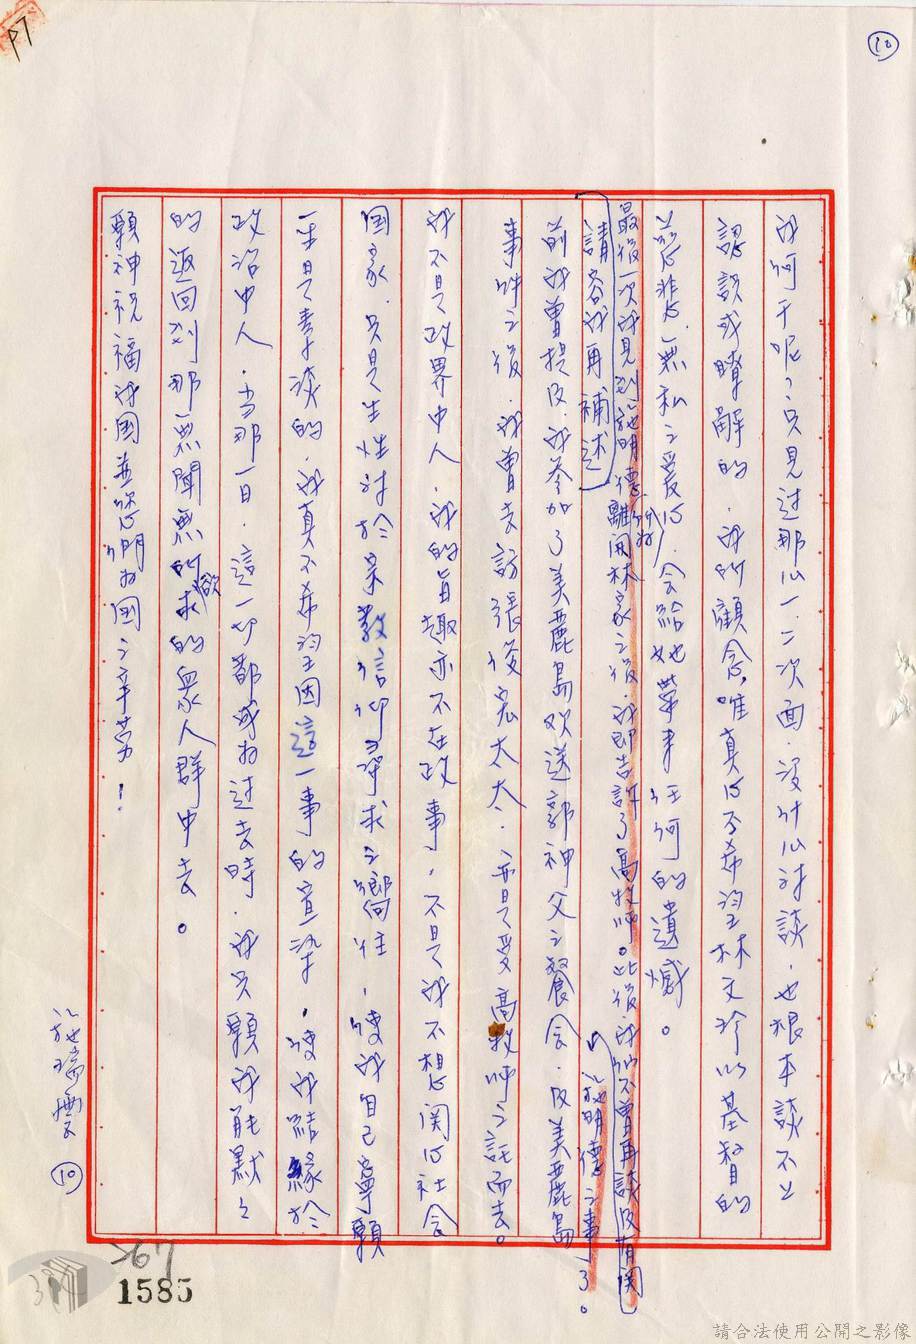 P7
⑩
我何干呢?只見过那么一、二次面,没什么討談,也根本談不上
認識或瞭解的。我所顧念,唯真心不希望林文珍以基督的
慈悲、無私之愛心,所為會給她帶来任何的遺憾。
最後一次我見到施明德離開林家之後,我即告訴了高牧师。此後,我們不曾再談及有関
施明德之事了。
請容我再補述
前我曾提及,我參加了美麗島欢送郭神父之餐会,及美麗島
事件之後,我曾去訪張俊宏太太,亦是受高牧师之託而去。
我不是政界中人,我的旨趣亦不在政事,不是我不想関心社会
国家,只是生性对於宗教信仰尋求之嚮往,使我自己寧願
平是素淡的,我真不希望因這一事的渲染,使我結緣於
政治中人,当那一日,這一切都成为过去時,我只願我能默々
的返回到那無聞無所欲求的眾人群中去。
願神祝福我国並您們为国之辛勞!
施瑞雲 ⑩
267
1585
請合法使用公開之影像